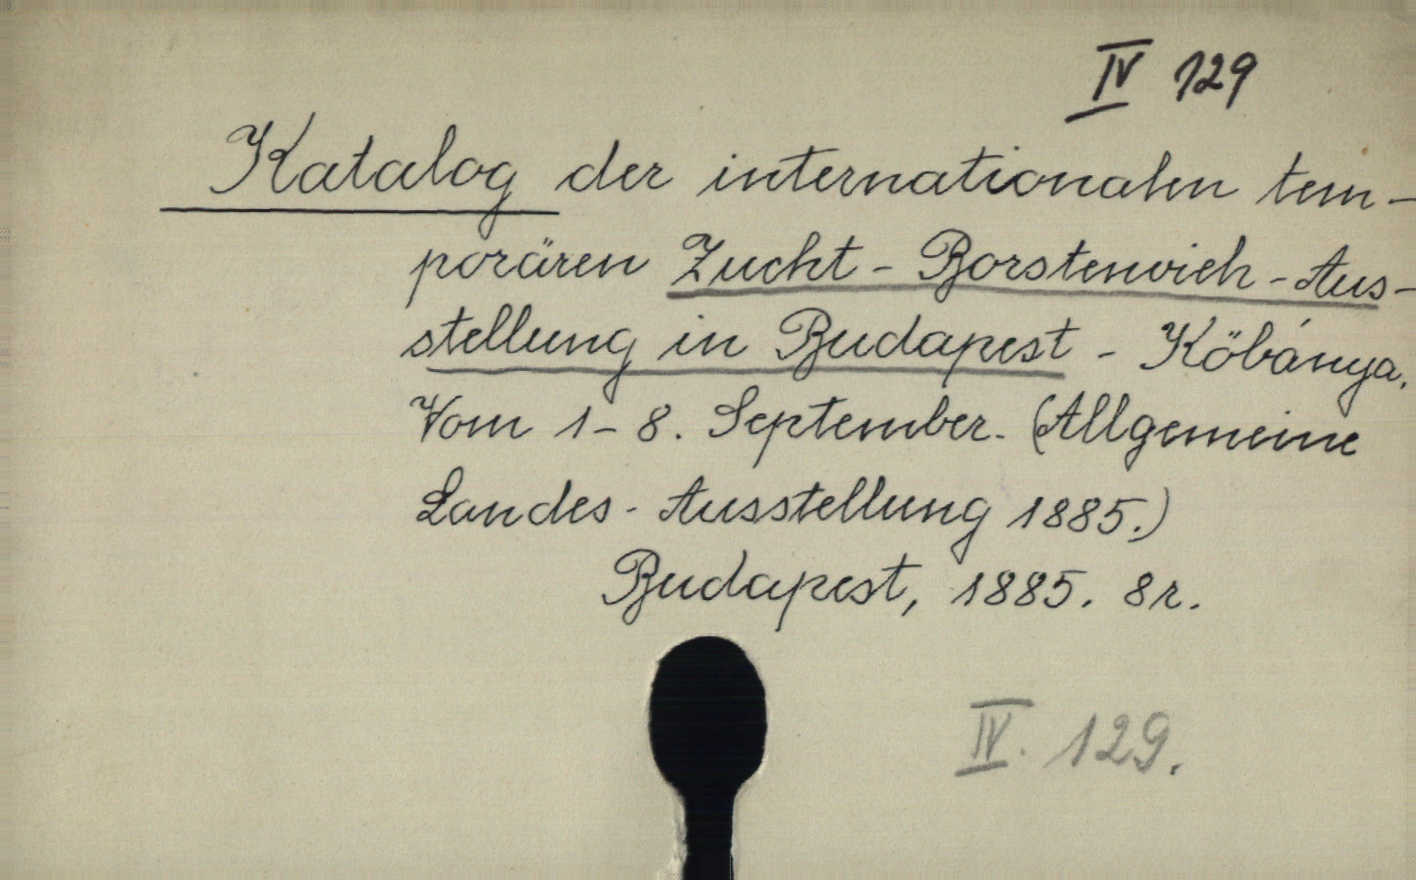 IV 129
Katalog der internationalen tem-
porären Zucht-Borstenvieh-Aus-
stellung in Budapest - Köbánya.
Vom 1-8. September. (Allgemeine
Landes-Ausstellung 1885.)
Budapest, 1885. 8r.
IV. 129.